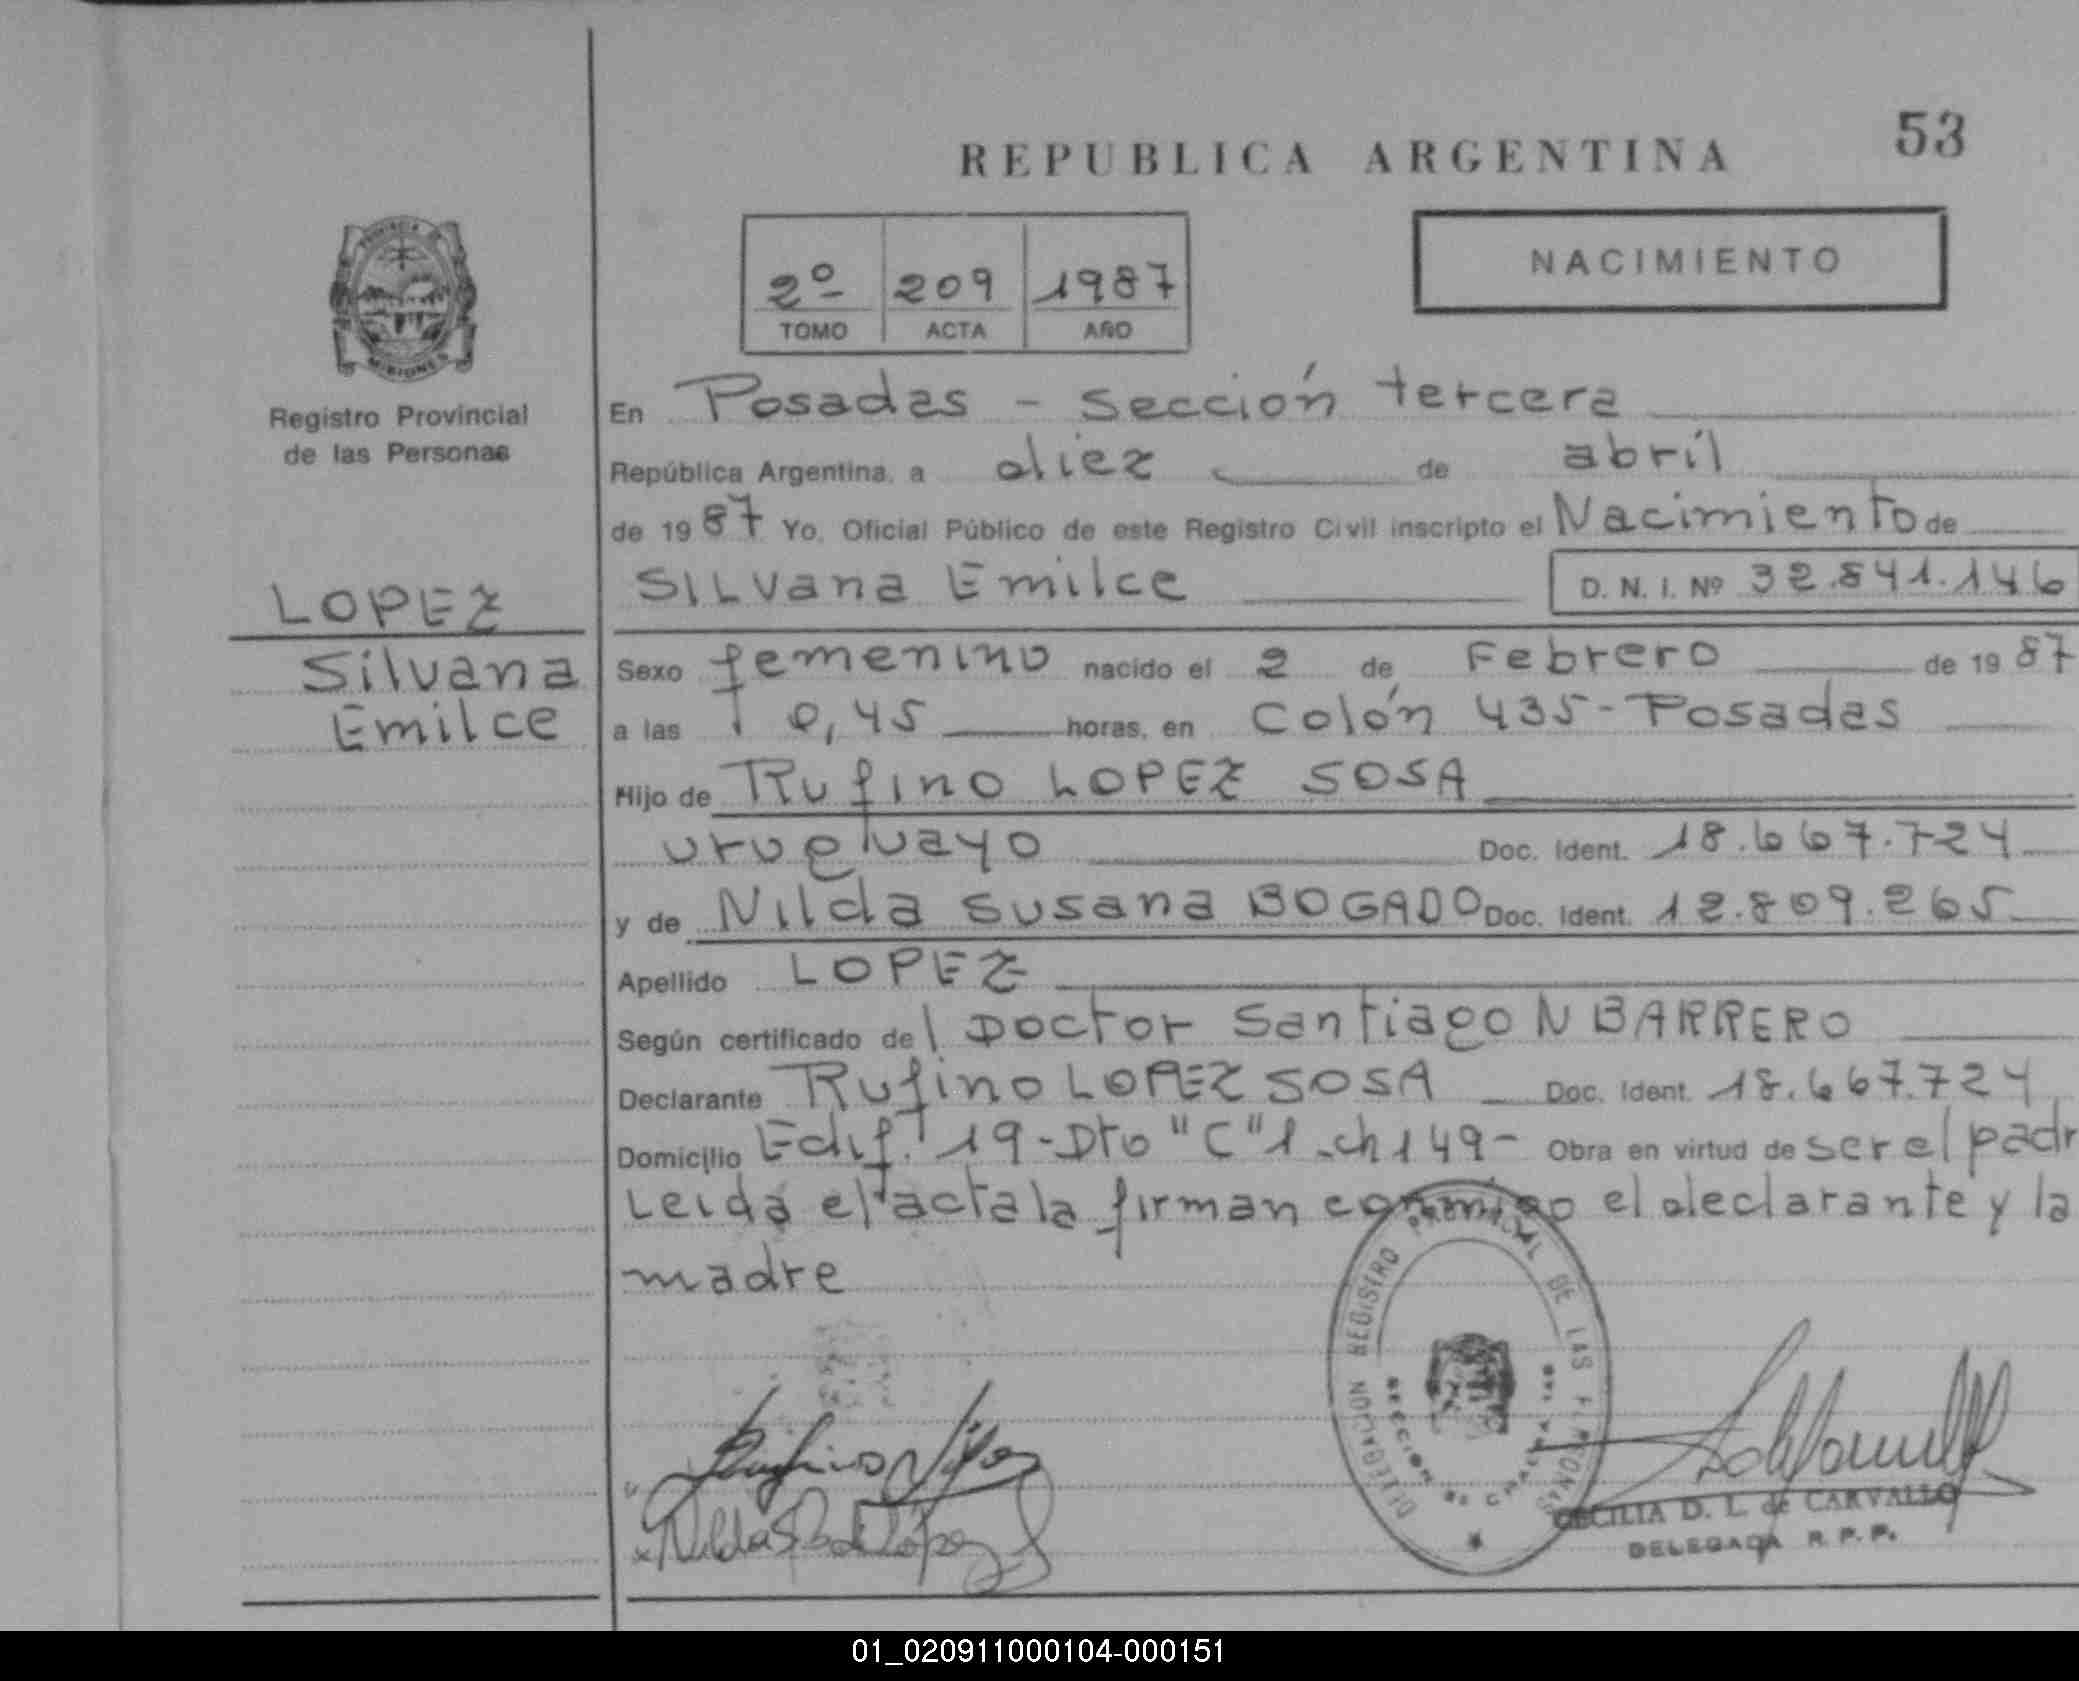 53
REPUBLICA ARGENTINA
NACIMIENTO
PROVINCIA DE MISIONES
Registro Provincial
de las Personas
2º 209 1987
TOMO ACTA AÑO
En Posadas - sección tercera
República Argentina, a diez de abril
de 1987 Yo, Oficial Público de este Registro Civil inscripto el Nacimiento de
LOPEZ
Silvana
Emilce
SILVana Emilce D. N. I. Nº 32.841.146
Sexo femenino nacido el 2 de Febrero de 1987
a las 0,45 horas, en Colón 435-Posadas
Hijo de Rufino LOPEZ SOSA
uruguayo Doc. Ident. 18.667.724
y de Nilda Susana BOGADO Doc. Ident. 12.809.265
Apellido LOPEZ
Según certificado del Doctor Santiago N BARRERO
Declarante Rufino LOPEZ SOSA Doc. Ident. 18.667.724
Domicilio Edif. 19-Dto "C" 1-ch 149- Obra en virtud de ser el padr
Leida el acta la firman conmigo el declarante y la
madre
DELEGACION REGISTRO PROVINCIAL DE LAS PERSONAS
SECCION
CECILIA D. L. de CARVALLO
DELEGADA R. P. P.
01_020911000104-000151